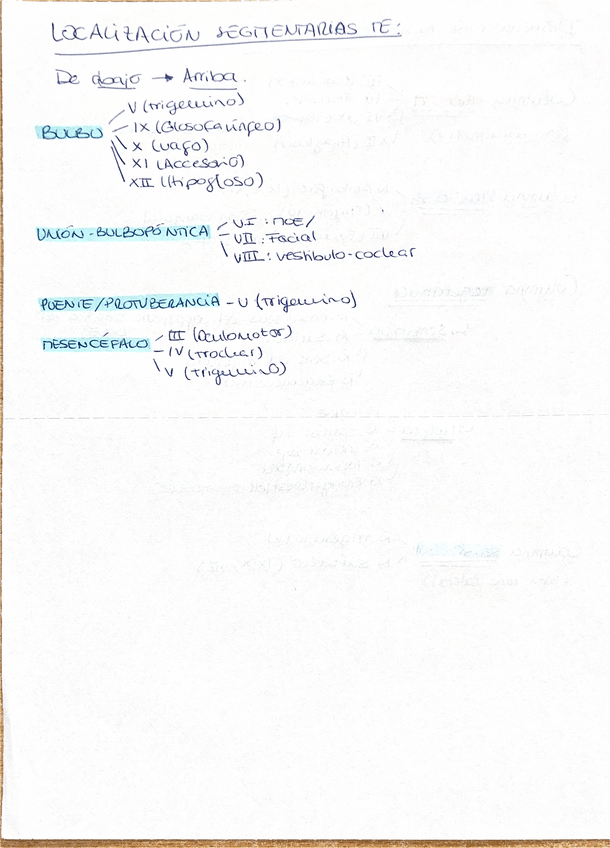 LOCALIZACIÓN SEGMENTARIAS TE:
De abajo → Arriba.
BULBO
V (trigemino)
IX (Glosofaríngeo)
X (vago)
XI (Accesorio)
XII (Hipogloso)
UNIÓN-BULBOPÓNTICA
VI : MOE
VII : Facial
VIII : vestíbulo-coclear
PUENTE/PROTUBERANCIA - V (Trigemino)
MESENCÉFALO
III (Oculomotor)
IV (troclear)
V (Trigemino)